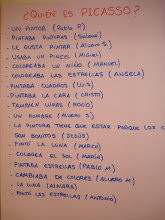 ¿QUIÉN ES PICASSO?
- UN PINTOR (Pablo P.)
- PINTABA PINTURAS (Salomé)
- LE GUSTA PINTAR (Álvaro S.)
- USABA UN PINCEL (Miguel)
- COLOREABA UN NIÑO (MANUEL)
- COLOREABA LAS ESTRELLAS (ANGELA)
- PINTABA CUADROS (LUIS)
- PINTABA LA CARA (CRISTO)
- TAMBIEN UVAS (ROCIO)
- UN HOMBRE (ALVARO S.)
- LA PINTURA TIENE QUE ESTAR PORQUE LOS C
SON BONITOS (JESÚS)
- PINTÓ LA LUNA (MARCO)
- COLOREA EL SOL (MARÍA)
- PINTABA ESTRELLAS (PABLO M.)
- CAMBIABA DE COLORES (ALVARO M.)
- LA LUNA (AINARA)
- PINTÓ LAS ESTRELLAS (ANTONIO)